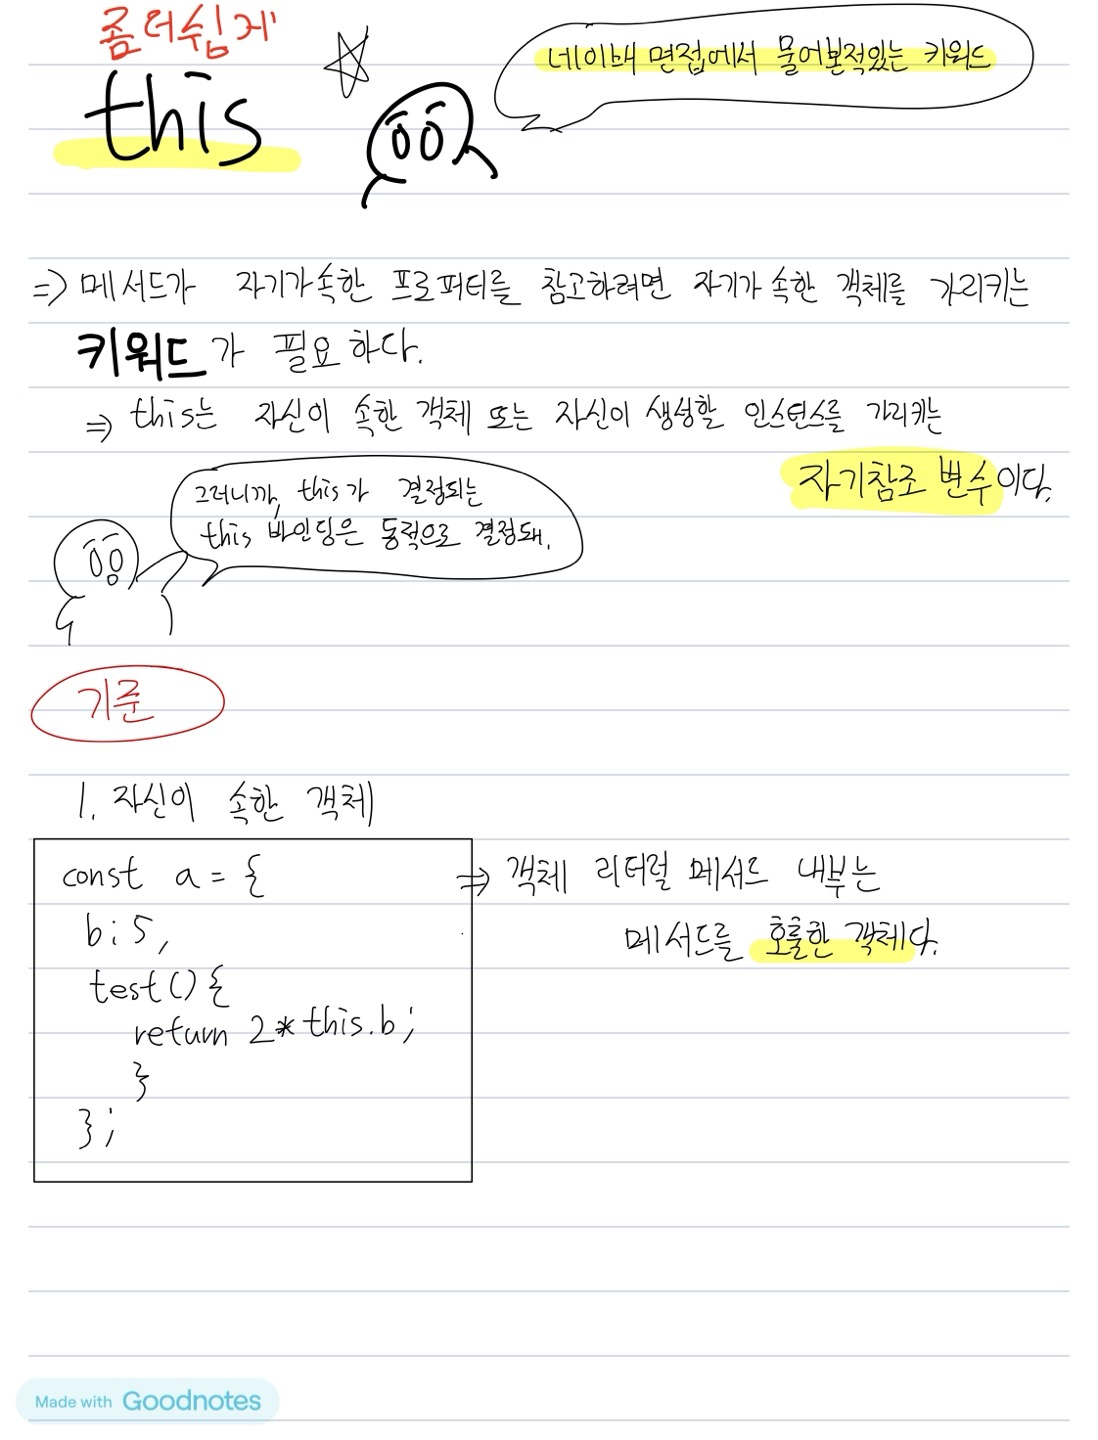 좀더쉽게
this
네이버 면접에서 물어본적있는 키워드
⇒ 메서드가 자기가 속한 프로퍼티를 참고하려면 자기가 속한 객체를 가리키는
키워드가 필요하다.
⇒ this는 자신이 속한 객체 또는 자신이 생성할 인스턴스를 가리키는
자기참조 변수이다.
그러니까, this가 결정되는
this 바인딩은 동적으로 결정돼.
기준
1. 자신이 속한 객체
const a = {
b: 5,
test() {
return 2 * this.b;
}
};
⇒ 객체 리터럴 메서드 내부는
메서드를 호출한 객체다.
Made with Goodnotes